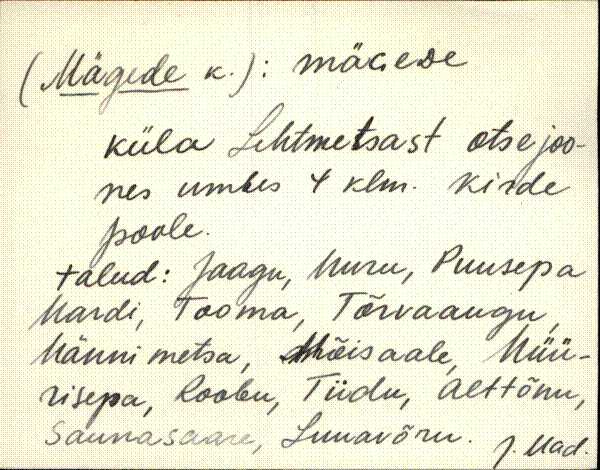 (Mägede k.): mägede
küla Lehtmetsast otsejoo-
nes umbes 4 klm. kirde
poole.
talud: Jaagu, Nuru, Puusepa
Mardi, Tooma, Tõrvaaugu,
Männimetsa, Mõisaale, Müü-
risepa, Roobu, Tiidu, Alttõnu,
Saunasaare, Luuavõru. J. Mad.